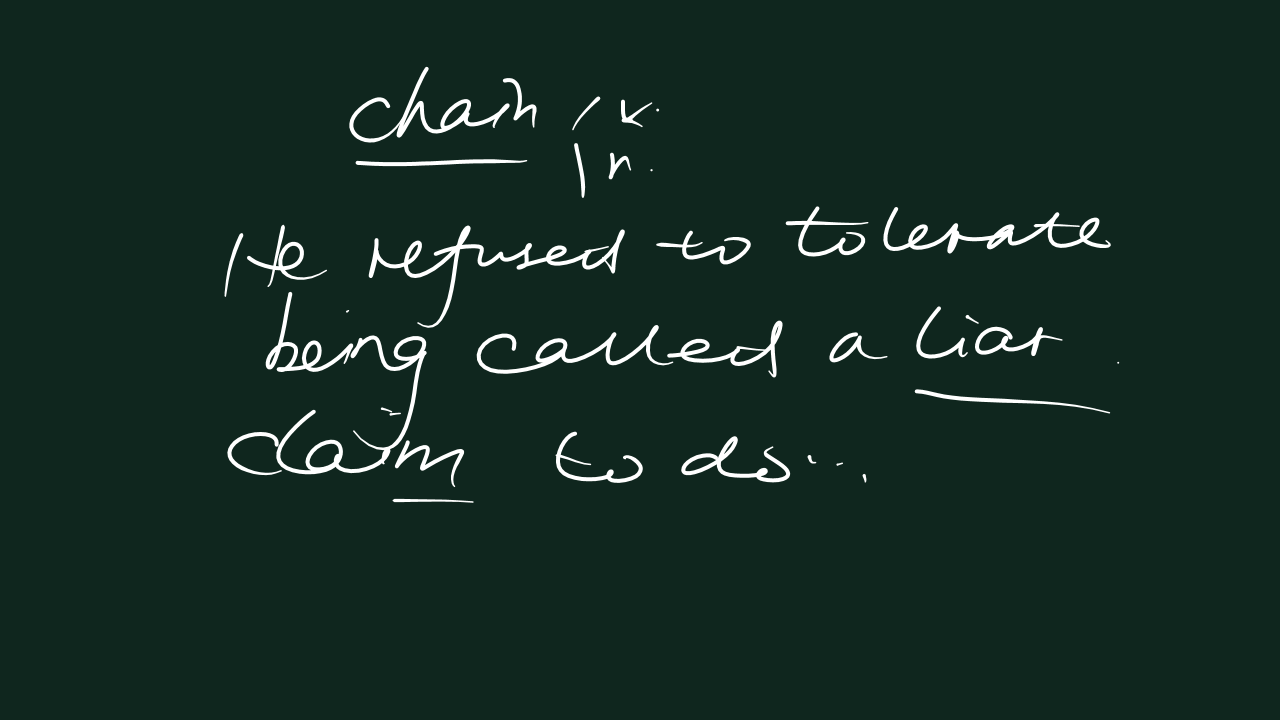 chain / v.
| n.
He refused to tolerate
being called a liar
claim to do...